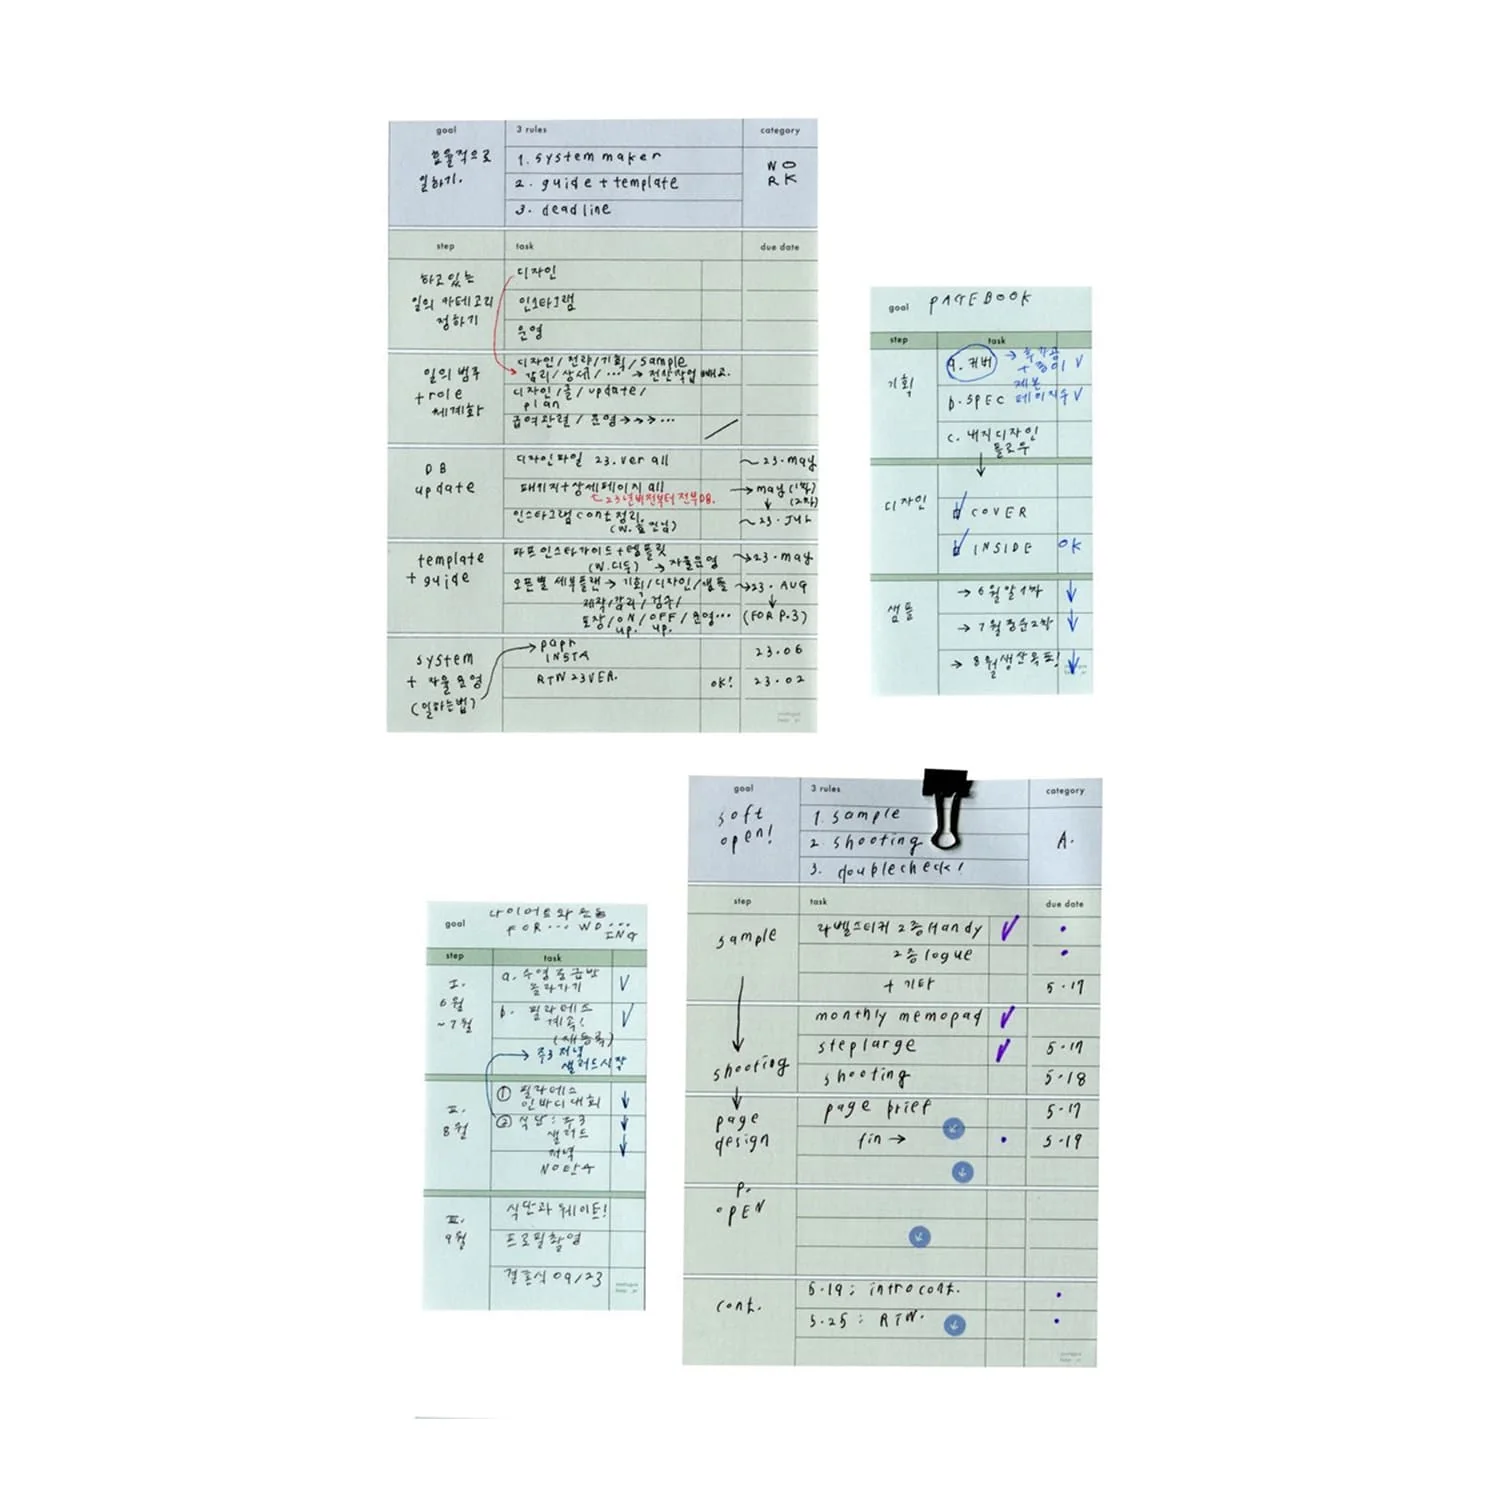 goal 3 rules category
효율적으로
일하기.
1. system maker
2. guide + template
3. deadline
WO
RK
step task due date
하고 있는
일의 카테고리
정하기
디자인
인스타그램
운영
일의 범주
+ role
체계화
디자인 / 전략 / 기획 / sample
감리 / 상세 / ··· → 전산작업 빼고.
디자인 / 글 / update /
plan
급여관련 / 운영 →→→ ···
DB
update
디자인파일 23. ver all
~ 23. may
패키지 + 상세페이지 all
→ may (1차)
(2차)
23년버전부터 전부 DB.
인스타그램 cont 정리.
~ 23. Jul
template
+ guide
인스타가이드 + 템플릿
→ 자율운영
→ 23. may
오픈별 세부플랜 → 기획 / 디자인 / 샘플
→ 23. AUG
제작 / 감리 / 검수 /
포장 / ON / OFF / 운영 ···
up. up.
(FOR P.3)
system
+ 자율운영
(일하는법)
papr
INSTA
23.06
RTW 23VER.
OK!
23.02
goal PAGEBOOK
step task
기획
a. 커버
→ 후가공
+ 종이 V
제본
b. SPEC
페이지수 V
c. 내지디자인
플로우
디자인
COVER
INSIDE OK
샘플
→ 6월말 1차
→ 7월중순 2차
→ 8월생산목표!
goal
FOR ··· WO ···
ING
step task
I.
6월
~ 7월
a. 수영 중급반
올라가기
b. 필라테스
계속!
(재등록)
주3 저녁
샐러드시작
II.
8월
① 필라테스
인바디대회
② 식단 : 주3
샐러드
저녁
NO탄수
III.
9월
식단과 웨이트!
프로필촬영
결혼식 09/23
goal 3 rules category
soft
open!
1. sample
2. shooting
3. doublecheck!
A.
step task due date
sample
라벨스티커 2종 Handy
2종 logue
+ 기타
5.17
shooting
monthly memopad
steplarge
5.17
shooting
5.18
page
design
page brief
5.17
fin →
5.19
P.
OPEN
cont.
5.19 : intro cont.
5.25 : RTW.